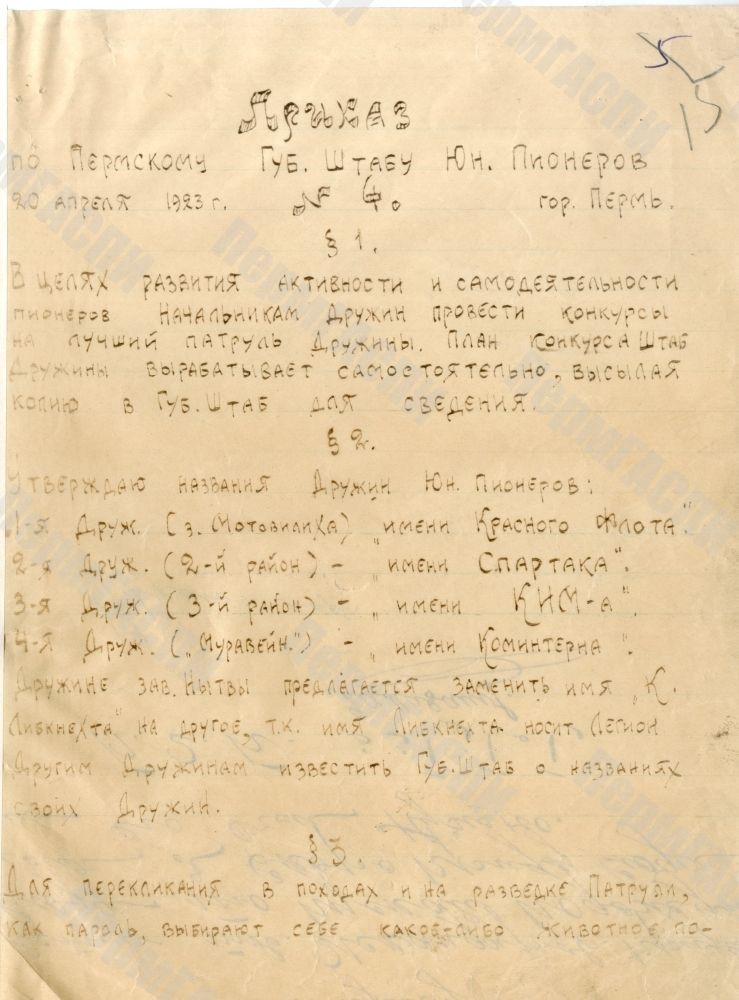 5
15
Приказ
по Пермскому Губ. Штабу Юн. Пионеров
20 апреля 1923 г. № 4. гор. Пермь.
§ 1.
В целях развития активности и самодеятельности
пионеров Начальникам Дружин провести конкурсы
на лучший патруль Дружины. План конкурса Штаб
Дружины вырабатывает самостоятельно, высылая
копию в Губ. Штаб для сведения.
§ 2.
Утверждаю названия Дружин Юн. Пионеров:
1-я Друж. (з. Мотовилиха) „имени Красного Флота".
2-я Друж. (2-й район) - „имени Спартака".
3-я Друж. (3-й район) - „имени КИМ-а".
4-я Друж. („Муравейн.") - „имени Коминтерна".
Дружине зав. Нытвы предлагается заменить имя „К.
Либкнехта" на другое, т.к. имя Либкнехта носит Легион
Другим Дружинам известить Губ. Штаб о названиях
своих Дружин.
§ 3.
Для перекликания в походах и на разведке Патрули,
как пароль, выбирают себе какое-либо животное по-
ПермГАСПИ